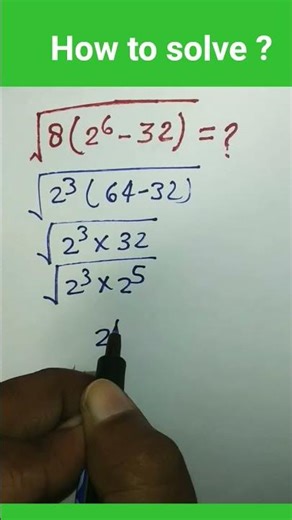 How to solve ?
√8(2⁶-32) = ?
√2³(64-32)
√2³×32
√2³×2⁵
2